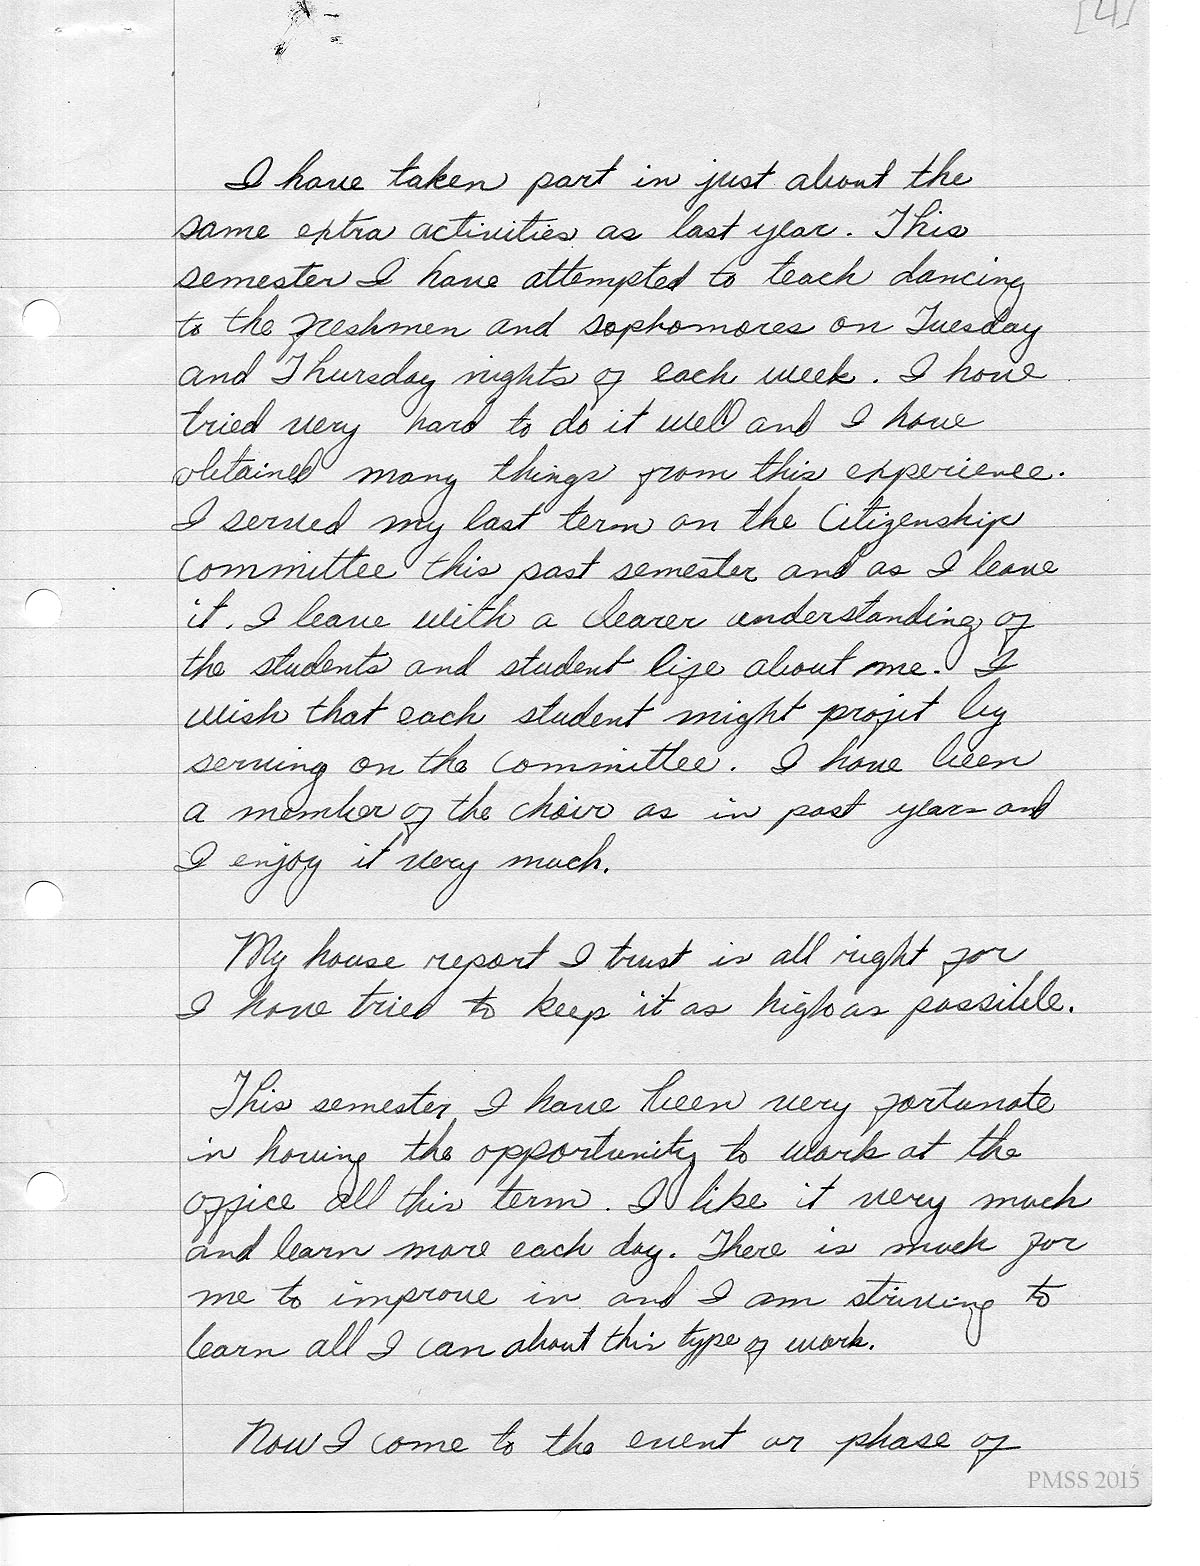 [4]
I have taken part in just about the
same extra activities as last year. This
semester I have attempted to teach dancing
to the freshmen and sophomores on Tuesday
and Thursday nights of each week. I have
tried very hard to do it well and I have
obtained many things from this experience.
I served my last term on the Citizenship
Committee this past semester and as I leave
it. I leave with a clearer understanding of
the students and student life about me. I
wish that each student might profit by
serving on the committee. I have been
a member of the choir as in past years and
I enjoy it very much.
My house report I trust is all right for
I have tried to keep it as high as possible.
This semester I have been very fortunate
in having the opportunity to work at the
office all this term. I like it very much
and learn more each day. There is much for
me to improve in and I am striving to
learn all I can about this type of work.
Now I come to the event or phase of
PMSS 2015